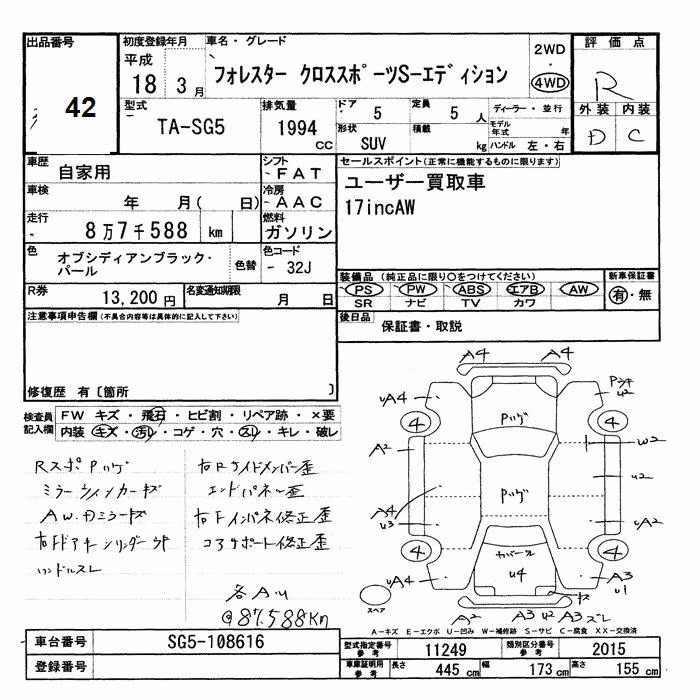 出品番号 初度登録年月 車名・グレード 評価点
平成 18 3月 フォレスター クロススポーツS-エディション 2WD 4WD R
42
外装 内装
D C
型式 排気量 ドア 定員 ディーラー・並行
TA-SG5 1994 CC 5 5人
形状 積載 モデル年式 年
SUV kg ハンドル 左・右
車歴 シフト セールスポイント(正常に機能するものに限ります)
自家用 FAT ユーザー買取車
車検 冷房 17incAW
年 月( 日) AAC
走行 燃料
8万7千588 km ガソリン
色 色替 色コード
オブシディアンブラック・パール 32J
装備品(純正品に限り○をつけてください) 新車保証書
PS PW ABS エアB AW 有・無
SR ナビ TV カワ
R券 名変通知期限
13,200円 月 日
後日品 保証書・取説
注意事項申告欄(不具合内容等は具体的に記入して下さい)
修復歴 有〔箇所 〕
検査員記入欄
FW キズ・飛石・ヒビ割・リペア跡・×要
内装 キズ・汚レ・コゲ・穴・スレ・キレ・破レ
Rスポ Pハゲ 右Rサイドメンバー歪
ミラーウィンカーキズ エンドパネル歪
AW.Dミラーキズ 右Fインパネ修正歪
コアサポート修正歪
ハンドルスレ
各AU
@87.588Km
A4 A4
uA4 u2
4 4
Pハゲ
A2 w2
u2
Pハゲ
A4
u3 uA2
4 4
カバール
u4
uA4 A3
u1
キズ
スペア
A2 A3 u2 A3 ズレ
A－キズ E－エクボ U－凹み W－補修跡 S－サビ C－腐食 XX－交換済
車台番号 SG5-108616
登録番号
型式指定番号 参考 11249 類別区分番号 参考 2015
車庫証明用 参考 長さ 445 cm 幅 173 cm 高さ 155 cm